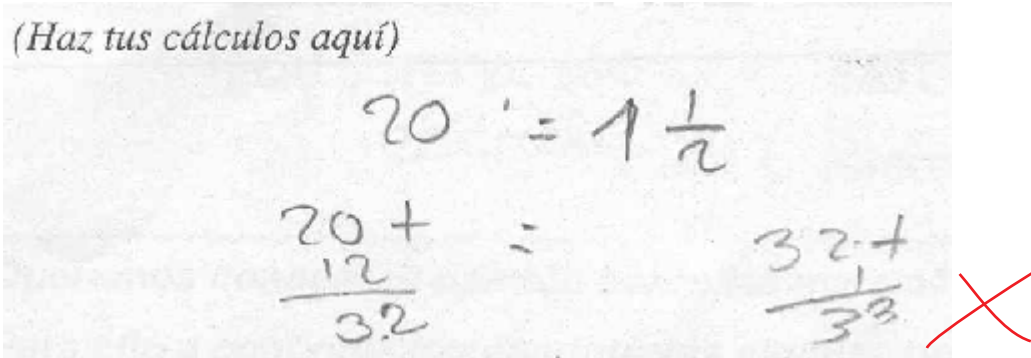 (Haz tus cálculos aquí)
20 ' = 1 1/2
20 + = 32 +
12 1
32 33